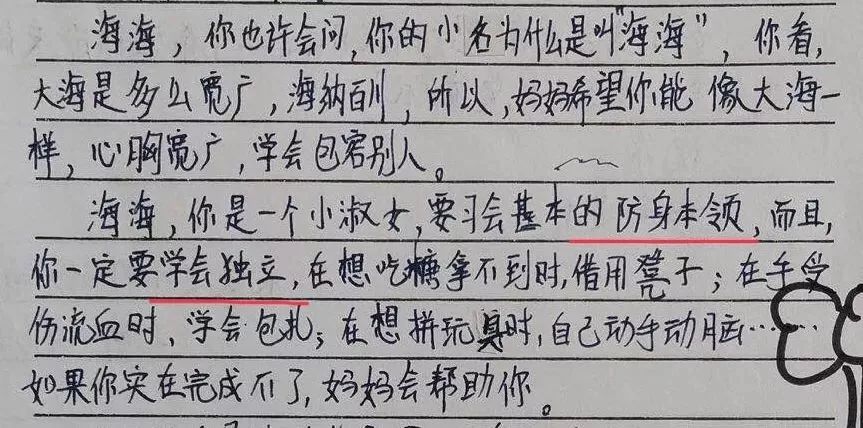 海海，你也许会问，你的小名为什么是叫"海海"，你看，
大海是多么宽广，海纳百川，所以，妈妈希望你能像大海一
样，心胸宽广，学会包容别人。
海海，你是一个小淑女，要习会基本的防身本领，而且，
你一定要学会独立，在想吃糖拿不到时，借用凳子；在手受
伤流血时，学会包扎；在想拼玩具时，自己动手动脑……
如果你实在完成不了，妈妈会帮助你。